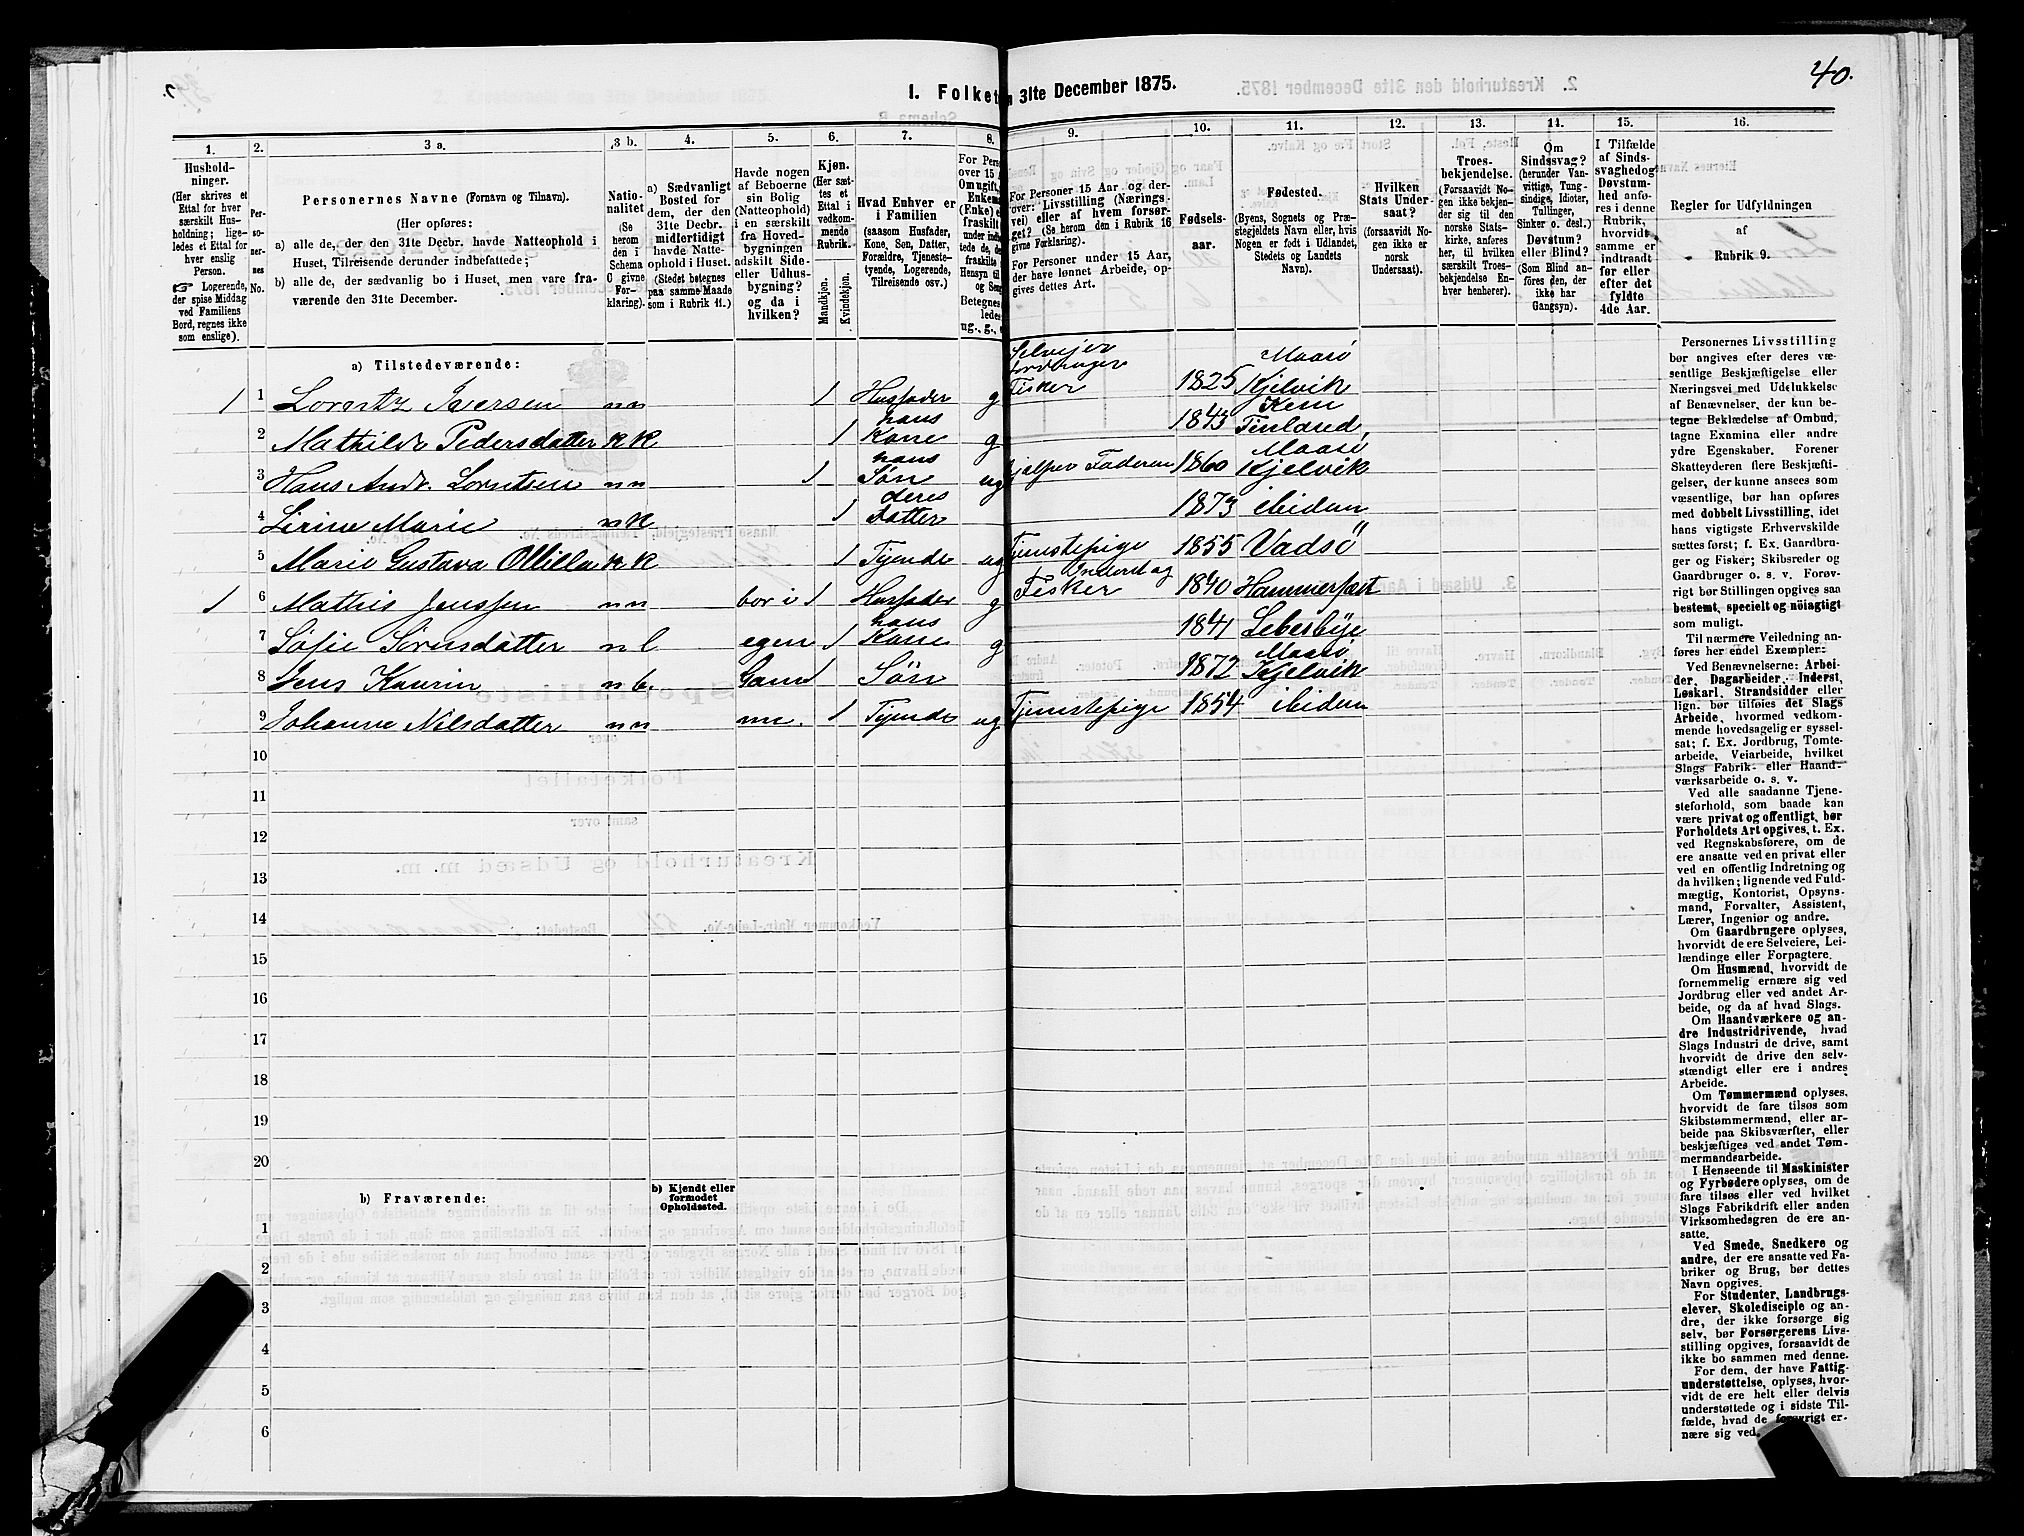 40.
I. Folket
n 31te December 1875.
1. Husholdninger. (Her skrives et Ettal for hver særskilt Husholdning; ligeledes et Ettal for hver enslig Person. Logerende, der spise Middag ved Familiens Bord, regnes ikke som enslige).
2. Personernes No.
3 a. Personernes Navne (Fornavn og Tilnavn). (Her opføres: a) alle de, der den 31te Decbr. havde Natteophold i Huset, Tilreisende derunder indbefattede; b) alle de, der sædvanlig bo i Huset, men vare fraværende den 31te December.
3 b. Nationalitet (Se herom den i Schema C givne Forklaring).
4. a) Sædvanligt Bosted for dem, der den 31te Decbr. midlertidigt havde Natteophold i Huset. (Stedet betegnes paa samme Maade som i Rubrik 11.)
5. Havde nogen af Beboerne sin Bolig (Natteophold) i en særskilt fra Hovedbygningen adskilt Side- eller Udhusbygning? og da i hvilken?
6. Kjøn. (Her sættes et Ettal i vedkommende Rubrik. Mandkjøn. Kvindekjøn.
7. Hvad Enhver er i Familien (saasom Husfader, Kone, Søn, Datter, Forældre, Tjenestetyende, Logerende, Tilreisende osv.)
8. For Pers
over 15 A
Om ugift,
Enkem
(Enke) e
fraskilt
9. For Personer 15 Aar og derover: Livsstilling (Næringsvei) eller af hvem forsørget? (Se herom den i Rubrik 16 givne Forklaring). For Personer under 15 Aar, der have lønnet Arbeide, opgives dettes Art.
10. Fødselsaar.
11. Fødested. (Byens, Sognets og Præstegjeldets Navn eller, hvis Nogen er født i Udlandet, Stedets og Landets Navn).
12. Hvilken Stats Undersaat? (forsaavidt Nogen ikke er norsk Undersaat).
13. Troesbekjendelse. (Forsaavidt Nogen ikke bekjender sig til den norske Statskirke, anføres her, til hvilken særskilt Troesbekjendelse Enhver henhører).
14. Om Sindssvag? (herunder Vanvittige, Tungsindige, Idioter, Tullinger, Sinker o. desl.) Døvstum? eller Blind? (Som Blind anføres den, der ikke har Gangsyn).
15. I Tilfælde af Sindssvaghed og Døvstumhed anføres i denne Rubrik, hvorvidt samme er indtraadt før eller efter det fyldte 4de Aar.
16. Regler for Udfyldningen af Rubrik 9.
a) Tilstedeværende:
1 1 Lorentz Iversen n n 1 Husfader g Selveier Jordbruger Fisker 1825 Maasø Kjelvik
2 Mathilde Pedersdatter k k 1 hans Kone g 1843 Kemi Finland
3 Hans Andr. Lorntsen n n 1 hans Søn ug hjælper Faderen 1860 Maasø Kjelvik
4 Lirine Marie n k 1 deres Datter 1873 ibidem
5 Marie Gustava Ollilla k k 1 Tjende ug Tjenstepige 1855 Vadsö
1 6 Mathis Jenssen n n bor i 1 Husfader g Inderst og Fisker 1840 Hammerfest
7 Sofie Sörnsdatter n l egen 1 hans Kone g 1841 Lebesbye
8 Jens Kaurin n b. Gam 1 Søn 1872 Maasø Kjelvik
9 Johanne Nilsdatter n n me. 1 Tjende ug Tjenstepige 1854 ibidem
10
11
12
13
14
15
16
17
18
19
20
b) Fraværende:
b) Kjendt eller formodet Opholdssted.
1
2
3
4
5
6
Personernes Livsstilling
bør angives efter deres væsentlige
Beskjæftigelse eller
Næringsvei med Udelukkelse
af Benævnelser, der kun betegne
Beklædelse af Ombud,
tagne Examina eller andre
ydre Egenskaber. Forener
Skatteyderen flere Beskjæftigelser,
der kunne ansees som
væsentlige, bør han opføres
med dobbelt Livsstilling, idet
hans vigtigste Erhvervskilde
sættes først; f. Ex. Gaardbruger
og Fisker; Skibsreder og
Gaardbruger o. s. v. Forøvrigt
bør Stillingen opgives saa
bestemt, specielt og nöiagtigt
som muligt.
Til nærmere Veiledning anføres
her endel Exempler:
Ved Benævnelserne: Arbeider,
Dagarbeider, Inderst,
Løskarl, Strandsidder eller
lign. bør tilføies det Slags
Arbeide, hvormed vedkommende
hovedsagelig er sysselsat;
f. Ex. Jordbrug, Tomtearbeide,
Veiarbeide, hvilket
Slags Fabrik- eller Haandværksarbeide
o. s. v.
Ved alle saadanne Tjenesteforhold,
som baade kan
være privat og offentligt, bør
Forholdets Art opgives, t. Ex.
ved Regnskabsførere, om de
ere ansatte ved en privat eller
ved en offentlig Indretning og
da hvilken; lignende ved Fuldmægtig,
Kontorist, Opsynsmand,
Forvalter, Assistent,
Lærer, Ingeniør og andre.
Om Gaardbrugere oplyses,
hvorvidt de ere Selveiere, Leilændinge
eller Forpagtere.
Om Husmænd, hvorvidt de
fornemmelig ernære sig ved
Jordbrug eller ved andet Arbeide,
og da af hvad Slags.
Om Haandværkere og andre
Industridrivende, hvad
Slags Industri de drive, samt
hvorvidt de drive den selvstændigt
eller ere i andres
Arbeide.
Om Tømmermænd oplyses,
hvorvidt de fare tilsøs som
Skibstømmermænd, eller arbeide
paa Skibsværfter, eller
beskjæftiges ved andet Tømmermandsarbeide.
I Henseende til Maskinister
og Fyrbødere oplyses, om de
fare tilsøs eller ved hvilket
Slags Fabrikdrift eller anden
Virksomhedsgren de ere ansatte.
Ved Smede, Snedkere og
andre, der ere ansatte ved Fabriker
og Brug, bør dettes
Navn opgives.
For Studenter, Landbrugselever,
Skoledisciple og andre,
der ikke forsørge sig
selv, bør Forsørgerens Livsstilling
opgives, forsaavidt de
ikke bo sammen med denne.
For dem, der have Fattigunderstøttelse,
oplyses, hvorvidt
de ere helt eller delvis
understøttede og i sidste Tilfælde,
hvad de forøvrigt ernære
sig ved.